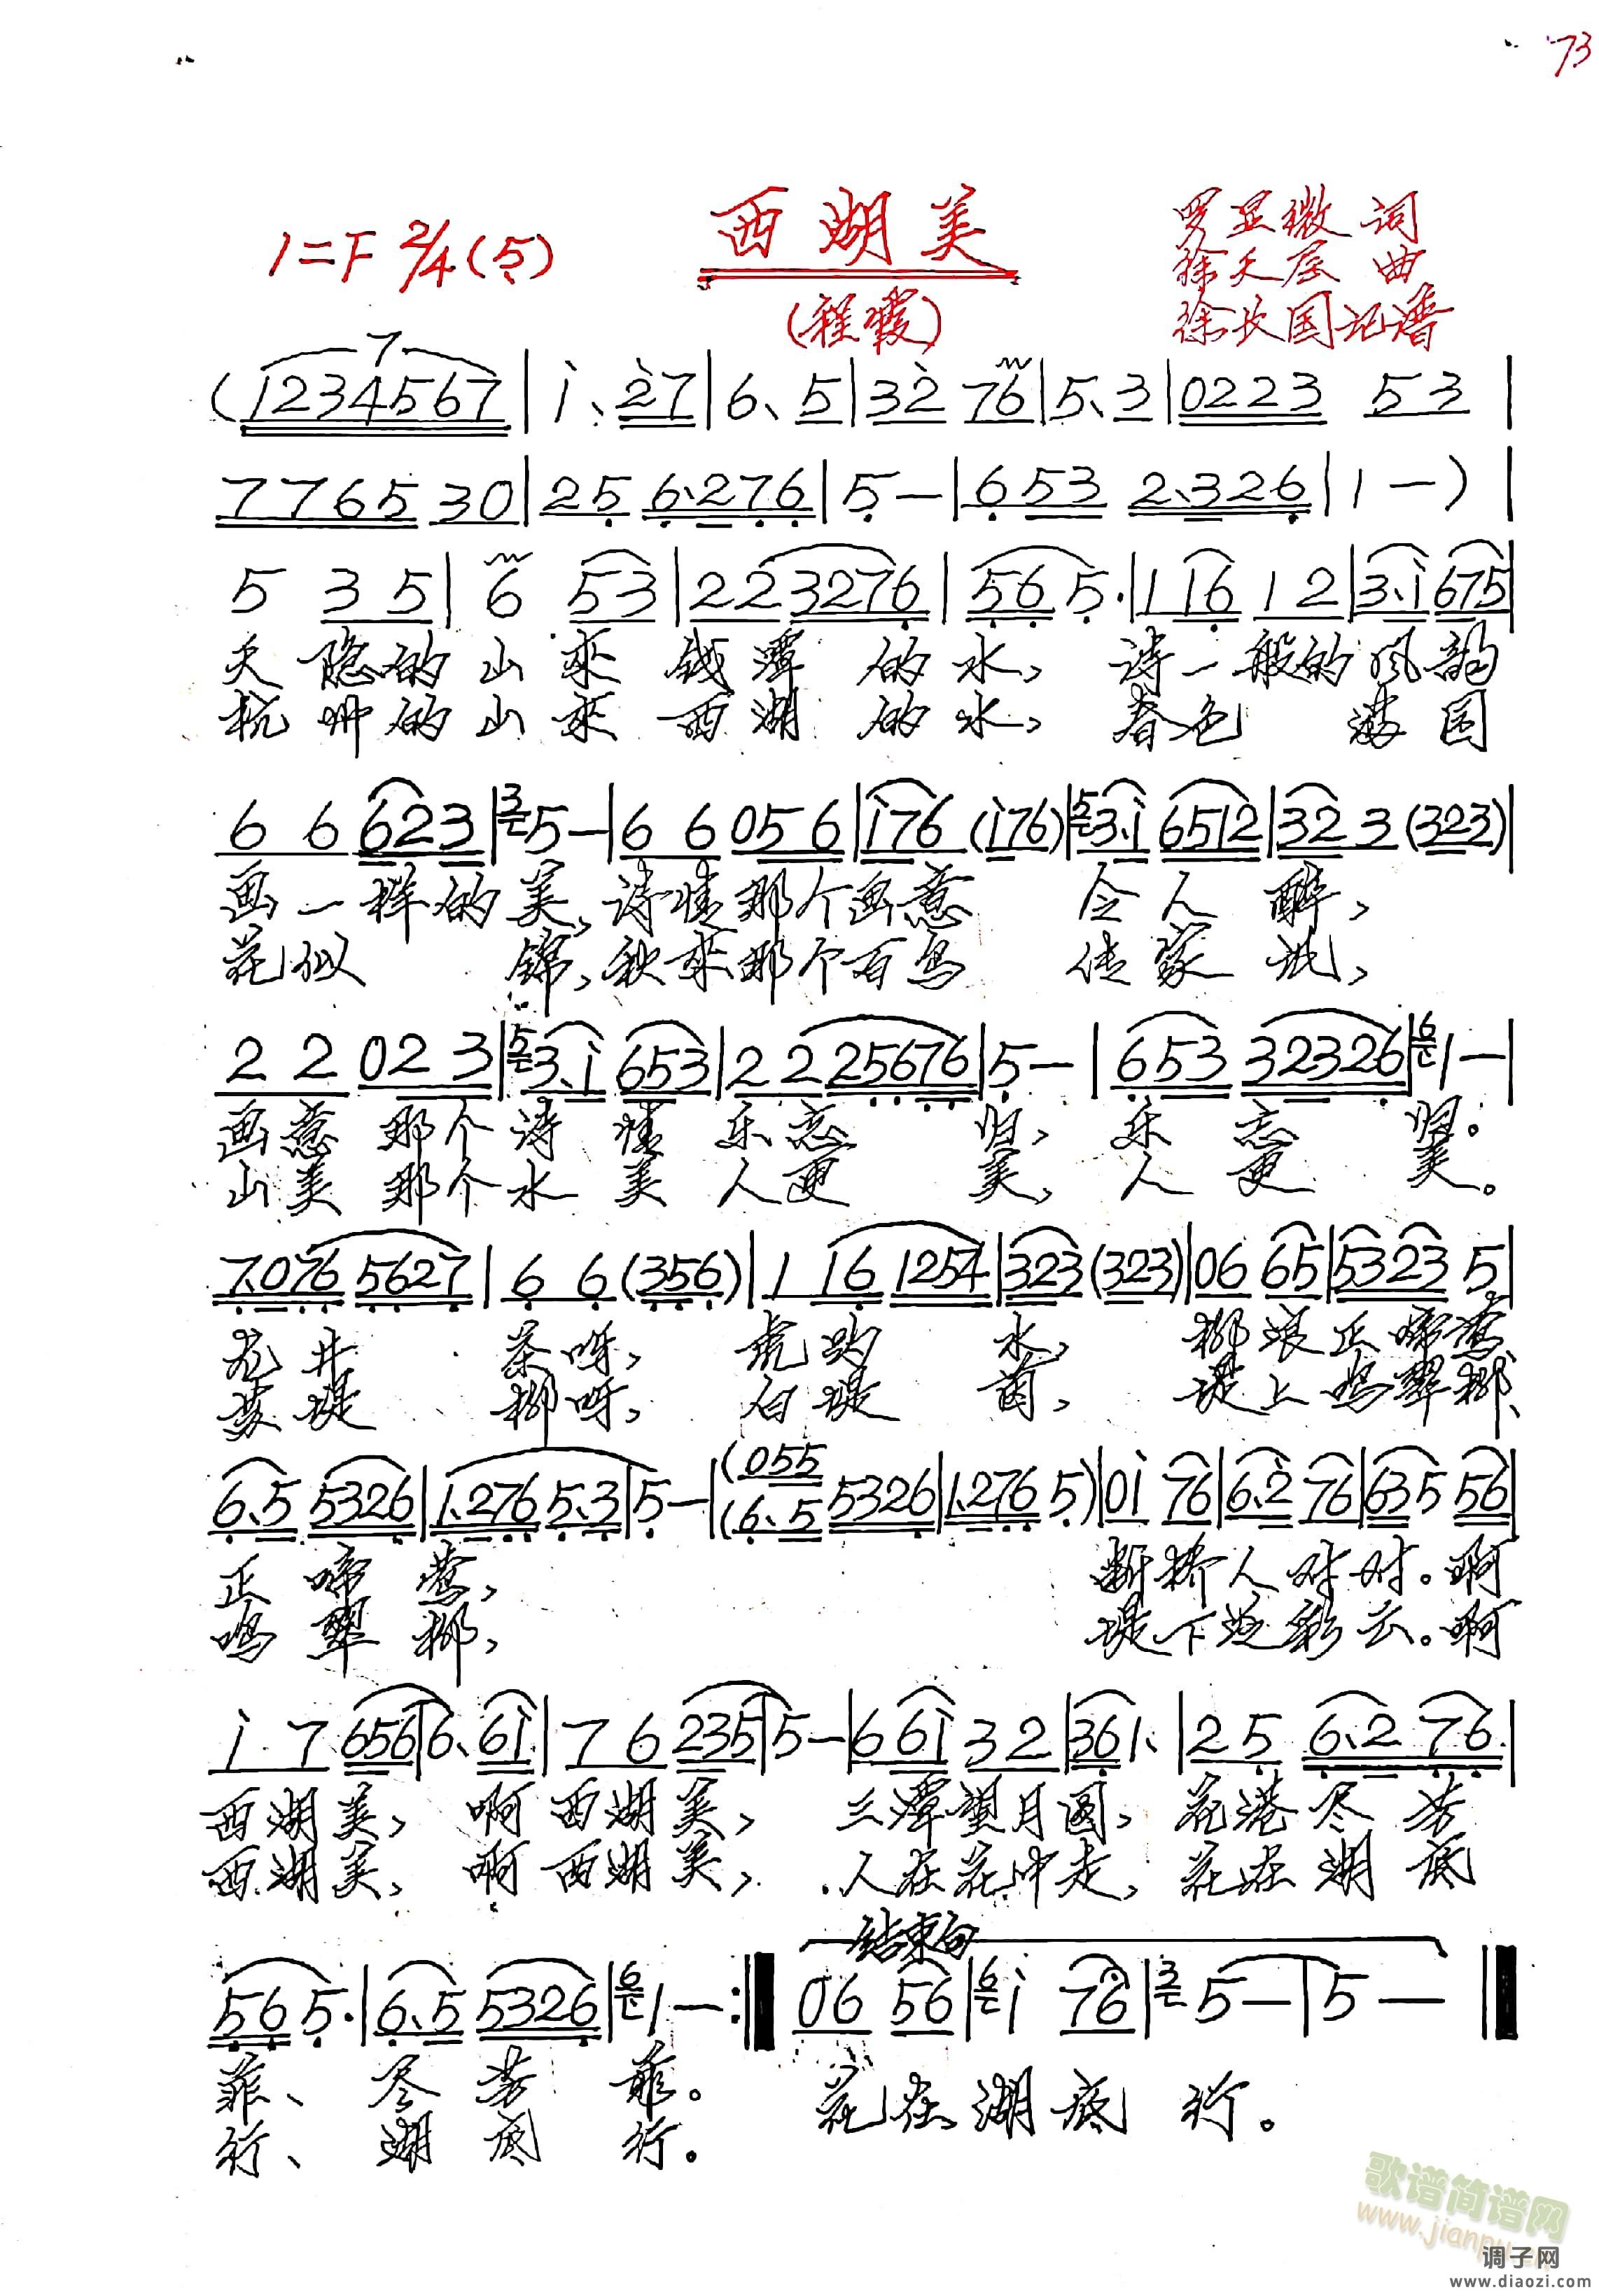 73
西湖美
1=F 2/4 (5̣)
罗显微 词
徐天层 曲
徐长国记谱
(程霞)
7
(1234567 | i、27 | 6、5 | 32 76 | 5、3 | 0223 53 |
7765 30 | 25 6、276 | 5 — | 653 2、326 | 1 — ) |
5 35 | 6 53 | 22 3276 | 56 5. | 1 16 12 | 3、i 675 |
天隐的山来钱潭的水、诗一般的风韵
杭州的山来西湖的水、春色 满园
66 623 | 5 — | 66 056 | i76 (i76) | 3、i 6512 | 32 3 (323) |
画一样的美、诗情那个画意 令人醉、
花似 锦、秋来那个百鸟 传家
22 023 | 3、i 653 | 22 25676 | 5 — | 653 32326 | 1 — |
画意那个诗情乐忘归、乐忘归。
山美那个水美人更美、人更美。
7、076 5627 | 66 (356) | 1 16 1254 | 323 (323) | 06 65 | 5323 5 |
龙井 茶呀、虎跑 水、柳浪正啼莺、
苏堤 柳呀、白堤 茵、堤上鸣翠柳、
(055
6、5 5326 | 1、276 5、3 | 5 — | (6、5 5326 | 1、276 5) | 0i 76 | 6、2 76 | 635 56 |
正啼莺、 断桥人对对。啊
鸣翠柳、 堤下 彩云。啊
i7 656 | 6、6i | 76 235 | 5 — | 6 6i 32 | 36 1、 | 25 6、2 76 |
西湖美、啊西湖美、三潭望月圆、花港尽芳
西湖美、啊西湖美、人在花中走、花在湖底
结束句
56 5. | 6、5 5326 | 1 — :‖ 06 56 | i 76 | 5 — | 5 — ‖
菲、尽芳菲。 花在湖底行。
行、湖底行。
歌谱简谱网
www.jianpu.cn
调子网
www.diaozi.com